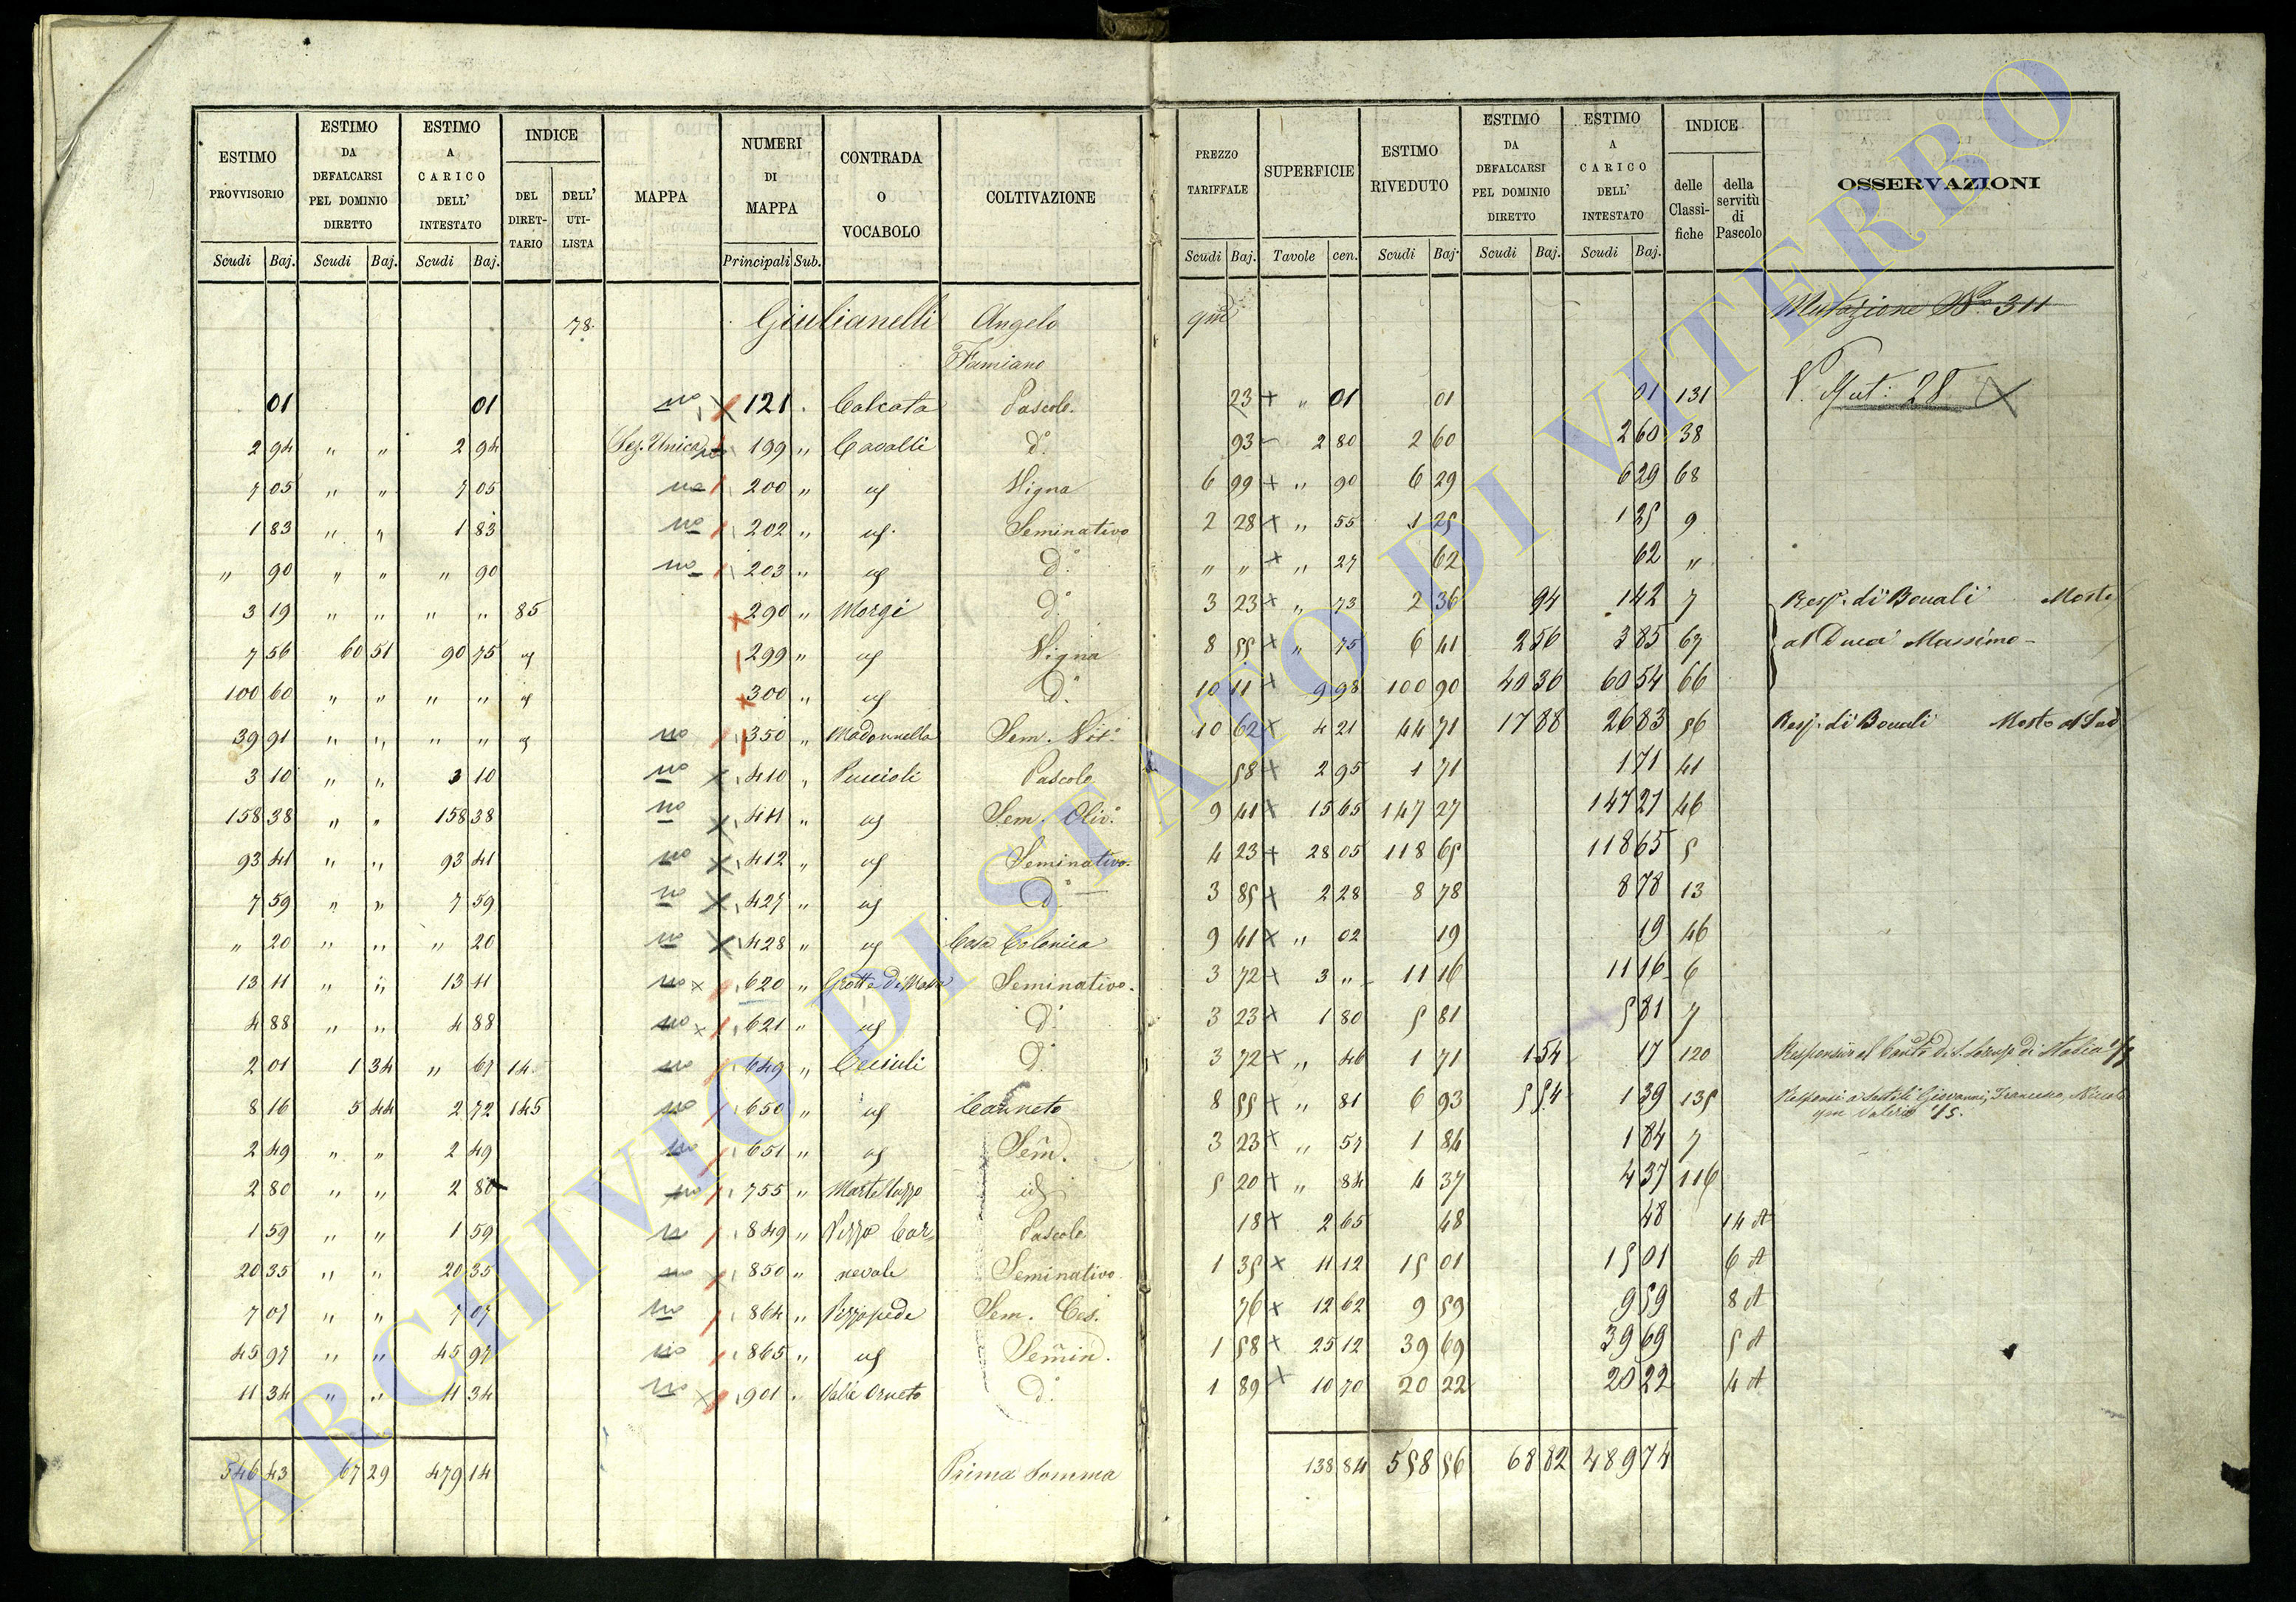 ESTIMO PROVVISORIO | ESTIMO DA DEFALCARSI PEL DOMINIO DIRETTO | ESTIMO A CARICO DELL' INTESTATO | INDICE | MAPPA | NUMERI DI MAPPA | CONTRADA O VOCABOLO | COLTIVAZIONE | PREZZO TARIFFALE | SUPERFICIE | ESTIMO RIVEDUTO | ESTIMO DA DEFALCARSI PEL DOMINIO DIRETTO | ESTIMO A CARICO DELL' INTESTATO | INDICE | OSSERVAZIONI
DEL DIRET-TARIO | DELL' UTI-LISTA | delle Classi-fiche | della servitù di Pascolo
Scudi Baj. | Scudi Baj. | Scudi Baj. | Principali Sub. | Scudi Baj. | Tavole cen. | Scudi Baj. | Scudi Baj. | Scudi Baj.
78. Giulianelli Angelo qm̃ Mutazione No. 311
Famiano
01 | 01 | no | 121 | Calcata | Pascolo. | 23 + " 01 | 01 | 01 | 131 | 28
2 94 " " 2 94 | Sez. Unica no | 199 " | Cavalli | d.° | 93 2 80 | 2 60 | 2 60 | 38
7 05 " " 7 05 | no | 200 " | uf | Vigna | 6 99 + " 90 | 6 29 | 6 29 | 68
1 83 " " 1 83 | no | 202 " | uf | Seminativo | 2 28 + " 55 | 1 25 | 1 25 | 9
" 90 " " " 90 | no | 203 " | uf | d.° | " " + " 27 | 62 | 62 | "
3 19 " " " " 85 | 290 " | Morgi | d.° | 3 23 + " 73 | 2 36 | 94 | 1 42 | 7 | Resp. di Bocali Mosto
7 56 60 51 90 75 uf | 299 " | uf | Vigna | 8 55 + " 75 | 6 41 | 2 56 | 3 85 | 67 | al Duca Massimo
100 60 " " " " uf | 300 " | uf | d.° | 10 11 + 9 98 | 100 90 | 40 36 | 60 54 | 66
39 91 " " " " uf | no | 350 " | Madonnella | Sem. Vit.° | 10 62 + 4 21 | 44 71 | 17 88 | 26 83 | 56 | Resp. di Bocali Mosto al Sud
3 10 " " 3 10 | no | 410 " | Puccioli | Pascolo | 58 + 2 95 | 1 71 | 1 71 | 41
158 38 " " 158 38 | no | 411 " | uf | Sem. Oliv.° | 9 41 + 15 65 | 147 27 | 147 27 | 46
93 41 " " 93 41 | no | 412 " | uf | Seminativo. | 4 23 + 28 05 | 118 65 | 118 65 | 5
7 59 " " 7 59 | no | 427 " | uf | d.° | 3 85 + 2 28 | 8 78 | 8 78 | 13
" 20 " " " 20 | no | 428 " | uf | Casa Colonica | 9 41 + " 02 | 19 | 19 | 46
13 11 " " 13 11 | no | 620 " | Grotta di | Seminativo. | 3 72 + 3 " | 11 16 | 11 16 | 6
4 88 " " 4 88 | no | 621 " | uf | d.° | 3 23 + 1 80 | 5 81 | 5 81 | 7
2 01 1 34 " 67 14 | no | 649 " | Ceciuli | d.° | 3 72 + " 46 | 1 71 | 1 54 | 17 | 120
8 16 5 44 2 72 145 | no | 650 " | uf | Canneto | 8 55 + " 81 | 6 93 | 5 54 | 1 39 | 135 | Giovanni, Francesco, Niccola
qm Valerio
2 49 " " 2 49 | no | 651 " | uf | Sem̃. | 3 23 + " 57 | 1 84 | 1 84 | 7
2 80 " " 2 80 | no | 755 " | Martelluzzo | id | 5 20 + " 84 | 4 37 | 4 37 | 116
1 59 " " 1 59 | no | 849 " | Pizzo Car= | Pascolo | 18 + 2 65 | 48 | 48 | 14 A
20 35 " " 20 35 | no | 850 " | nevale | Seminativo | 1 35 + 11 12 | 15 01 | 15 01 | 6 A
7 07 " " 7 07 | no | 864 " | Pizzopede | Sem. Ces. | 76 + 12 62 | 9 59 | 9 59 | 8 A
45 97 " " 45 97 | no | 865 " | uf | Sem̃in. | 1 58 + 25 12 | 39 69 | 39 69 | 5 A
11 34 " " 11 34 | no | 901 | Valle Orneto | d.° | 1 89 + 10 70 | 20 22 | 20 22 | 4 A
546 43 | 67 29 | 479 14 | Prima Somma | 138 84 | 558 56 | 68 82 | 489 74
ARCHIVIO DI STATO DI VITERBO